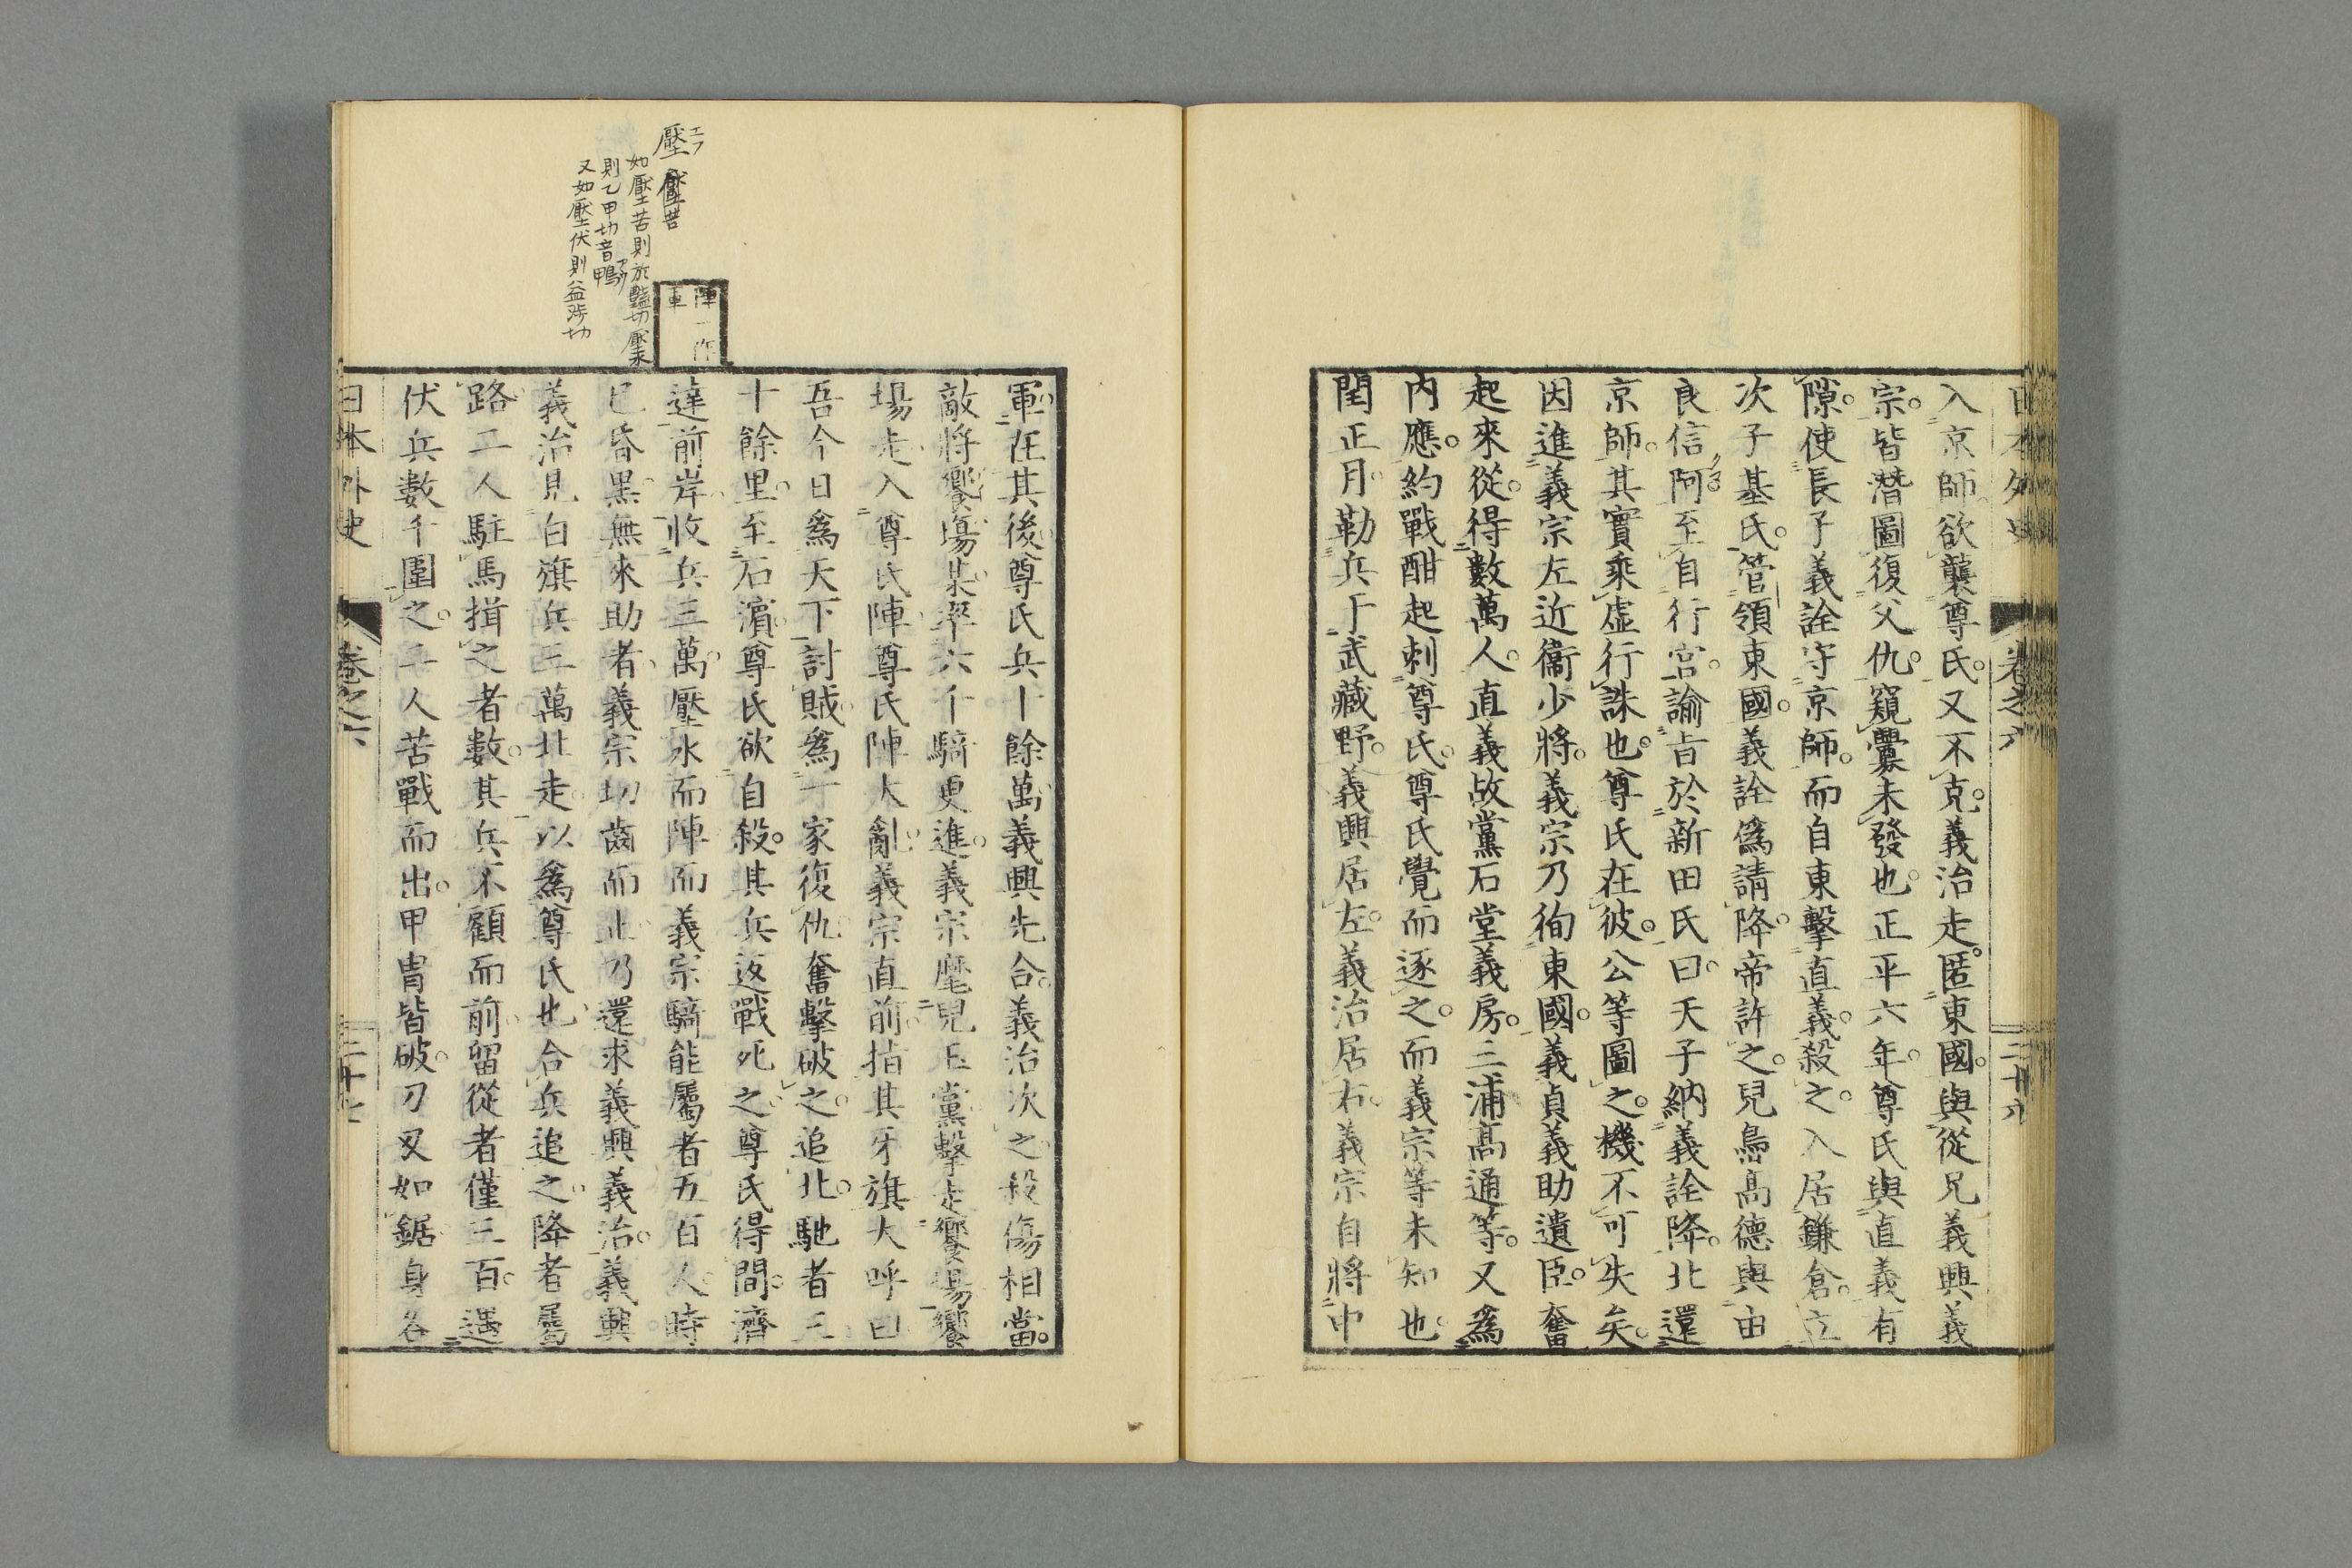 入京師欲襲尊氏又不克義治走匿東國與從兄義興義
宗皆潛圖復父仇窺釁未發也正平六年尊氏與直義有
隙使長子義詮守京師而自東擊直義殺之入居鎌倉立
次子基氏管領東國義詮爲請降帝許之兒島高德與由
良信阿至自行宮諭旨於新田氏曰天子納義詮降北還
京師其實乘虛行誅也尊氏在彼公等圖之機不可失矣
因進義宗左近衞少將義宗乃徇東國義貞義助遺臣奮
起來從得數萬人直義故黨石堂義房三浦高通等又爲
內應約戰酣起刺尊氏尊氏覺而逐之而義宗等未知也
閏正月勒兵于武藏野義興居左義治居右義宗自將中
日本外史 卷之六 二十六
軍在其後尊氏兵十餘萬義興先合義治次之殺傷相當
敵將饗場某率六千騎更進義宗麾兒玉黨擊走饗場饗
場走入尊氏陣尊氏陣大亂義宗直前指其牙旗大呼曰
吾今日爲天下討賊爲一家復仇奮擊破之追北馳者三
十餘里至石濱尊氏欲自殺其兵返戰死之尊氏得間濟
達前岸收兵三萬壓水而陣而義宗騎能屬者五百人時
已昏黑無來助者義宗切齒而止乃還求義興義治義興
義治見白旗兵三萬北走以爲尊氏也合兵追之降者屬
路二人駐馬揖之者數其兵不顧而前留從者僅三百遇
伏兵數千圍之人苦戰而出甲冑皆破刀刃如鋸身各
日本外史 卷之六 二十七
陣一作
軍
壓 エフ 壓苦
如壓苦則於豔切壓禾
則乙甲切音鴨
又如壓伏則益涉切